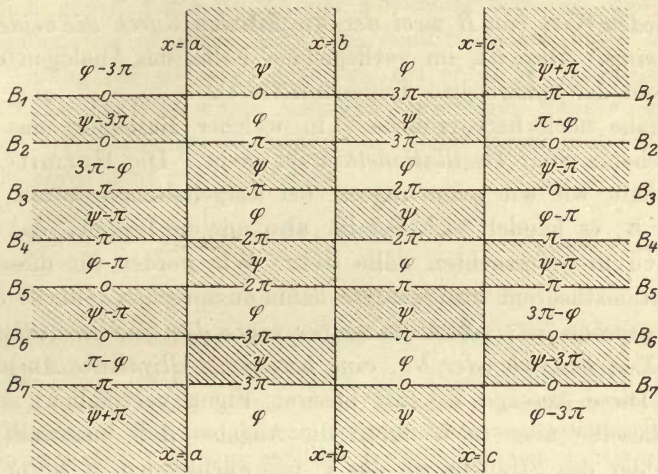 x=a x=b x=c
φ-3π ψ φ ψ+π
B₁ 0 0 3π π
ψ-3π φ ψ π-φ
B₂ 0 π 3π 0
3π-φ ψ φ ψ-π
B₃ π π 2π 0
ψ-π φ ψ φ-π
B₄ π 2π 2π π
φ-π ψ φ ψ-π
B₅ 0 2π π π
ψ-π φ ψ 3π-φ
B₆ 0 3π π 0
π-φ ψ φ ψ-3π
B₇ π 3π 0 0
ψ+π φ ψ φ-3π
x=a x=b x=c